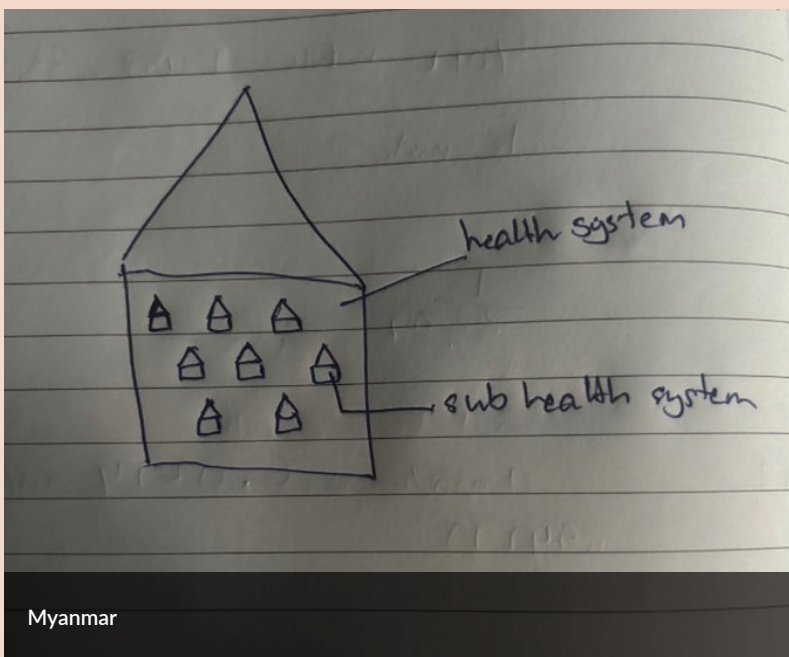 health system
sub health system
Myanmar